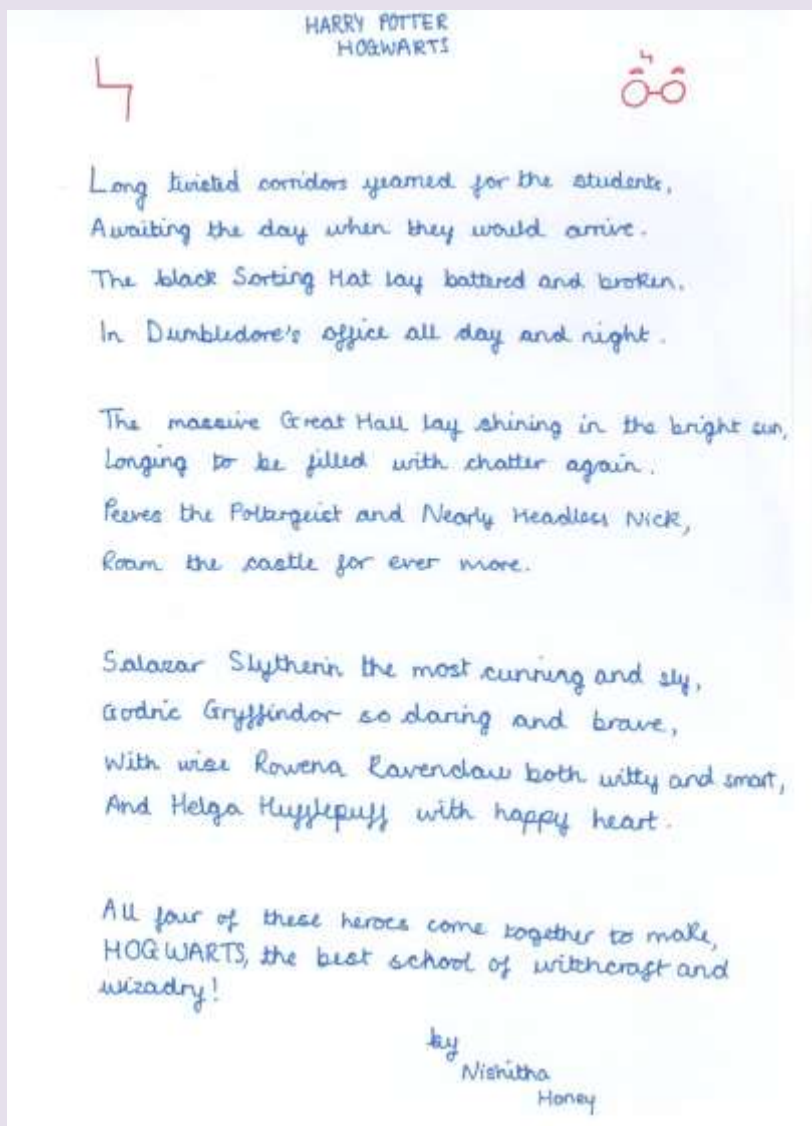 HARRY POTTER
HOGWARTS
Long twisted corridors yearned for the students,
Awaiting the day when they would arrive.
The black Sorting Hat lay battered and broken.
In Dumbledore's office all day and night.
The massive Great Hall lay shining in the bright sun,
Longing to be filled with chatter again.
Peeves the Poltergeist and Nearly Headless Nick,
Roam the castle for ever more.
Salazar Slytherin the most cunning and sly,
Godric Gryffindor so daring and brave,
With wise Rowena Ravenclaw both witty and smart,
And Helga Hufflepuff with happy heart.
All four of these heroes come together to make,
HOGWARTS, the best school of witchcraft and
wizadry!
by
Nishitha
Honey